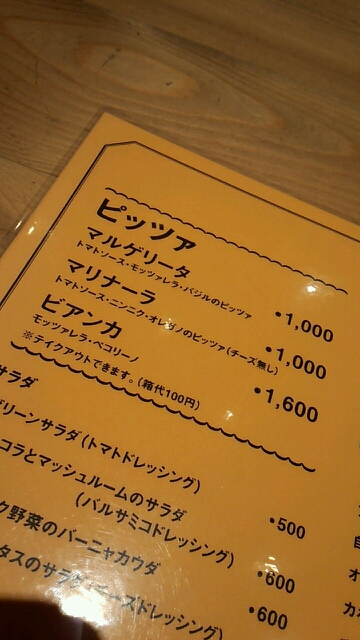 ピッツァ
マルゲリータ
トマトソース・モッツァレラ・バジルのピッツァ
・1,000
マリナーラ
トマトソース・ニンニク・オレガノのピッツァ(チーズ無し)
・1,000
ビアンカ
モッツァレラ・ペコリーノ
・1,600
※テイクアウトできます。(箱代100円)
サラダ
リーンサラダ(トマトドレッシング)
・500
コラとマッシュルームのサラダ
(バルサミコドレッシング)
・600
ク野菜のバーニャカウダ
・600
タスのサラダ ーズドレッシング)